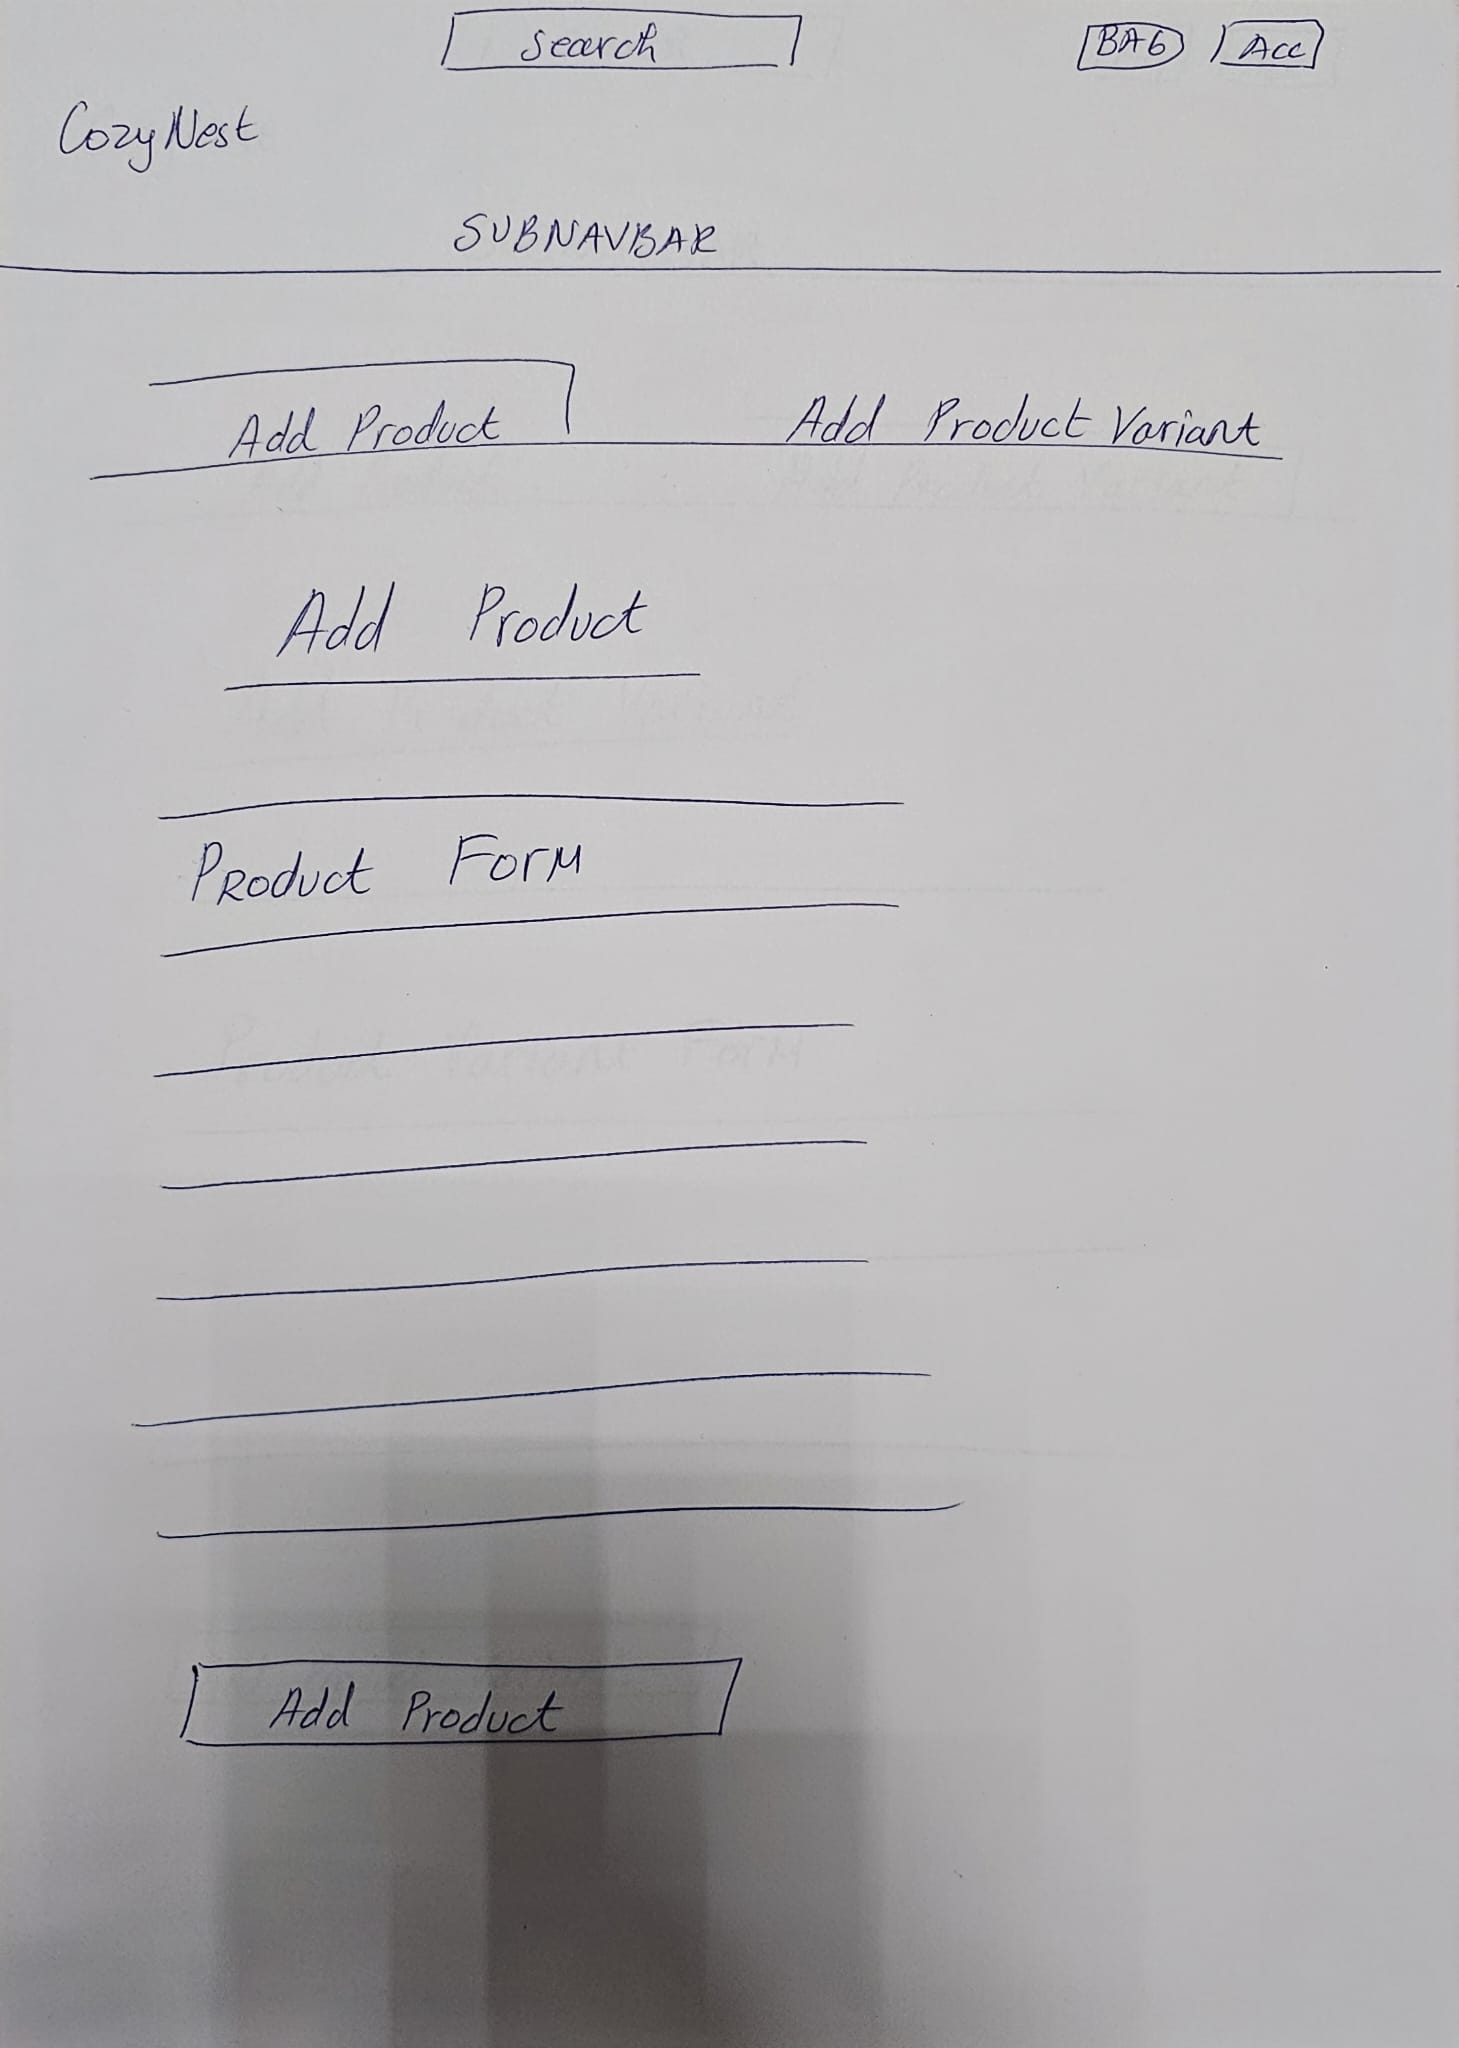 Search
BAG
Acc
CozyNest
SUBNAVBAR
Add Product
Add Product Variant
Add Product
Product Form
Add Product